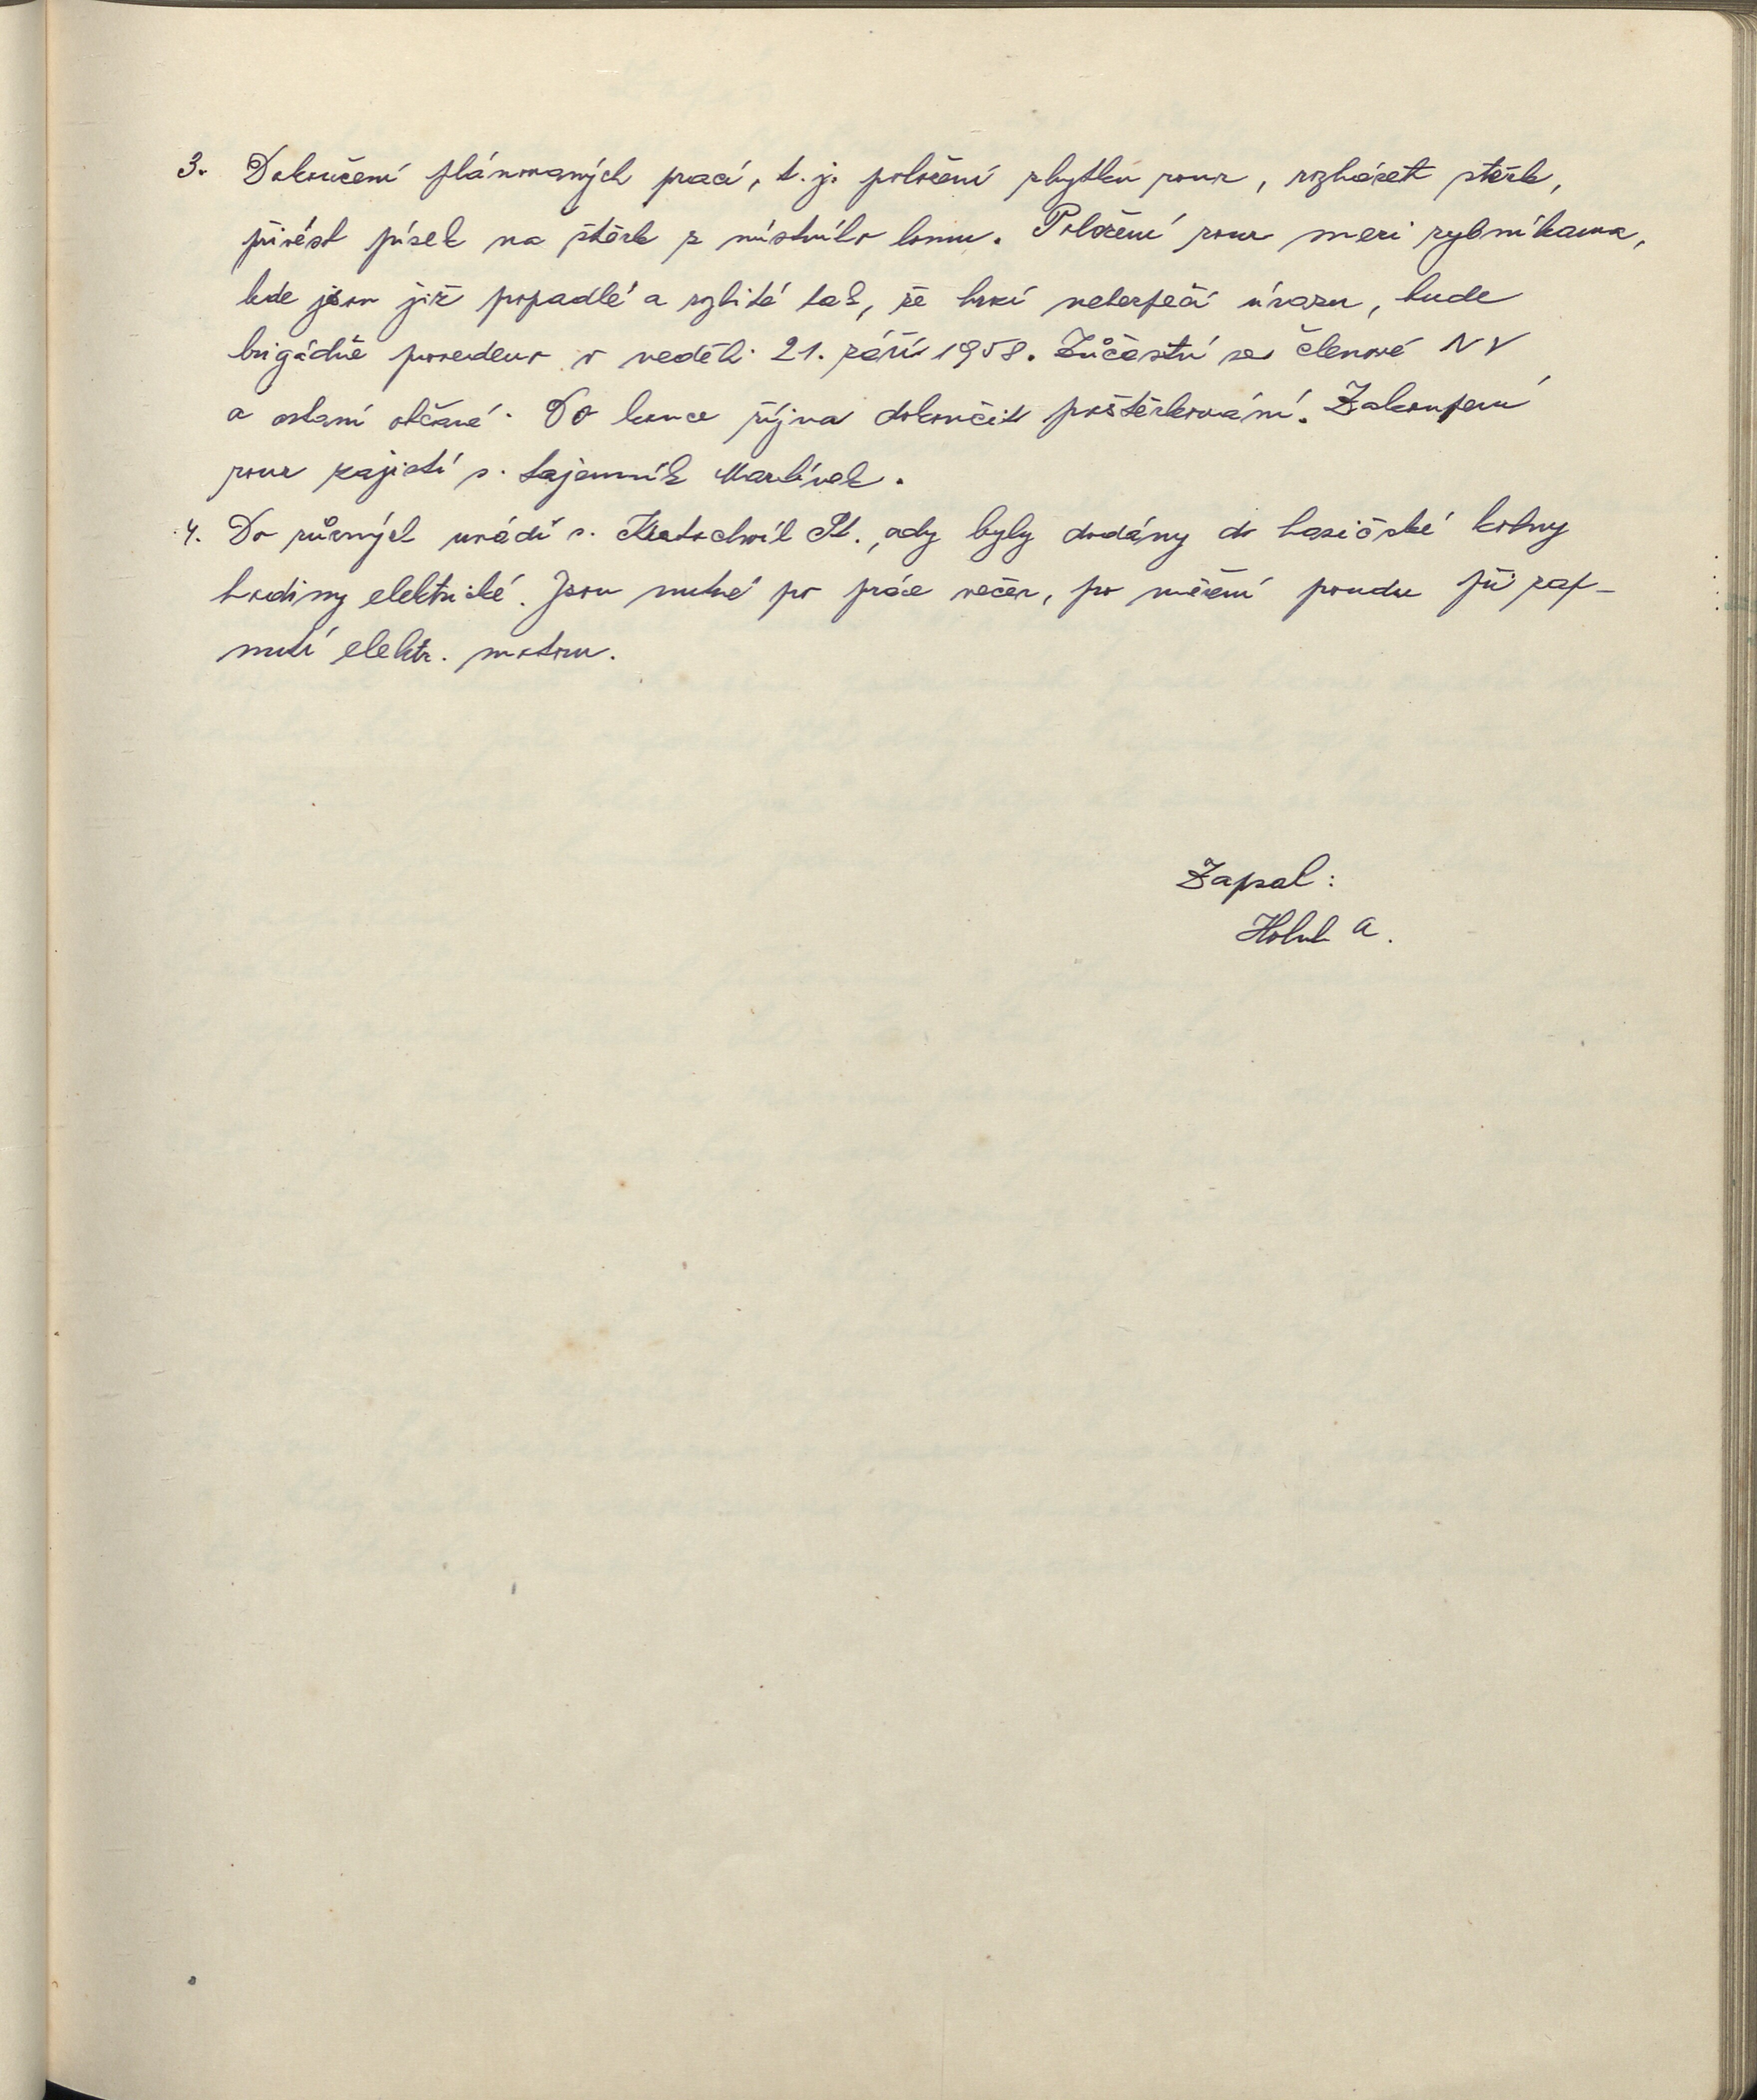 3. Dokončení plánovaných prací, t. j. položení zbytků rour, rozházet štěrk,
přivést písek na štěrk z místního lomu. Položení rour mezi rybníkama,
kde jsou již popadlé a rozbité tak, že hrozí nebezpečí úrazu, bude
brigádně provedeno v neděli 21. září 1958. Zůčastní se členové NV
a ostaní občané. Do konce října dokončit poštěrkování. Zakoupení
rour zajistí s. tajemník Martínek.
4. Do různých uvádí s. Kratochvíl St., aby byly dodány do hasičské kolny
hodiny elektrické. Jsou nutné po práce večer, po měření proudu při zap-
nutí elektr. motoru.
Zapsal:
Holub A.